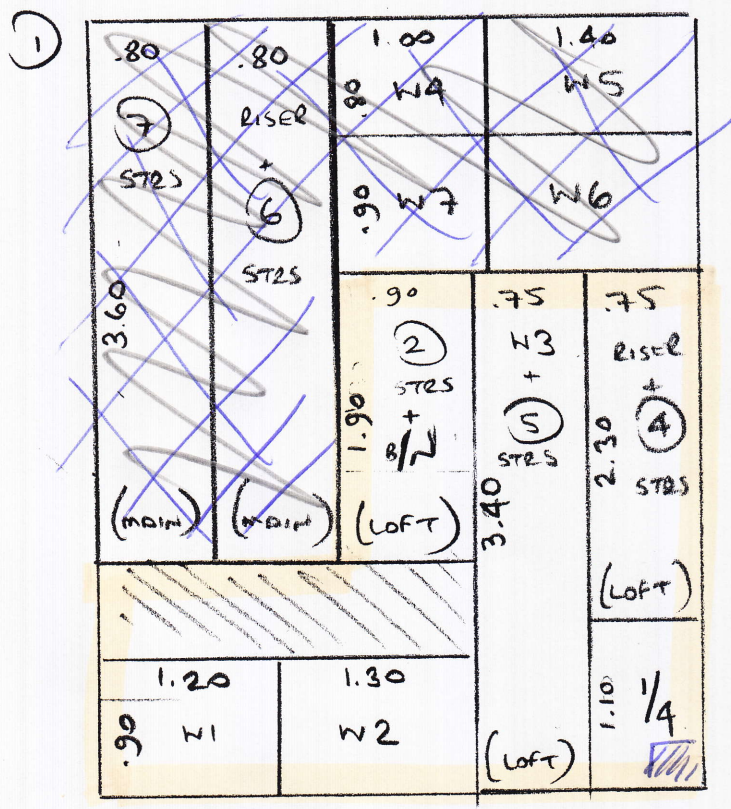 1
.80
7
STRS
3.60
(MAIN)
.80
RISER
+
6
STRS
(MAIN)
1.00
.80
W4
1.40
W5
.90
W7
W6
.90
2
STRS
+
1.90
(LOFT)
.75
W3
+
5
STRS
3.40
(LOFT)
.75
RISER
+
4
STRS
2.30
(LOFT)
1.20
.90
W1
1.30
W2
1.10
1/4